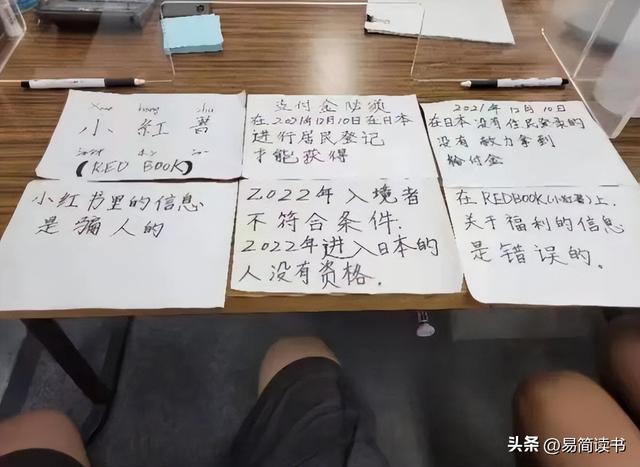 小 紅 書
(RED BOOK)
支付金必须
在2021年12月10日在日本
进行居民登记
才能获得
2021年 12月 10日
在日本 没有 住民登录的
没有
给付金
小红书里的信息
是 骗 人 的
2022年 入境者
不符合条件.
2022年进入日本的
人没有资格.
在 REDBOOK(小紅書)上,
关于福利的信息
是错误的.
头条 @易简读书